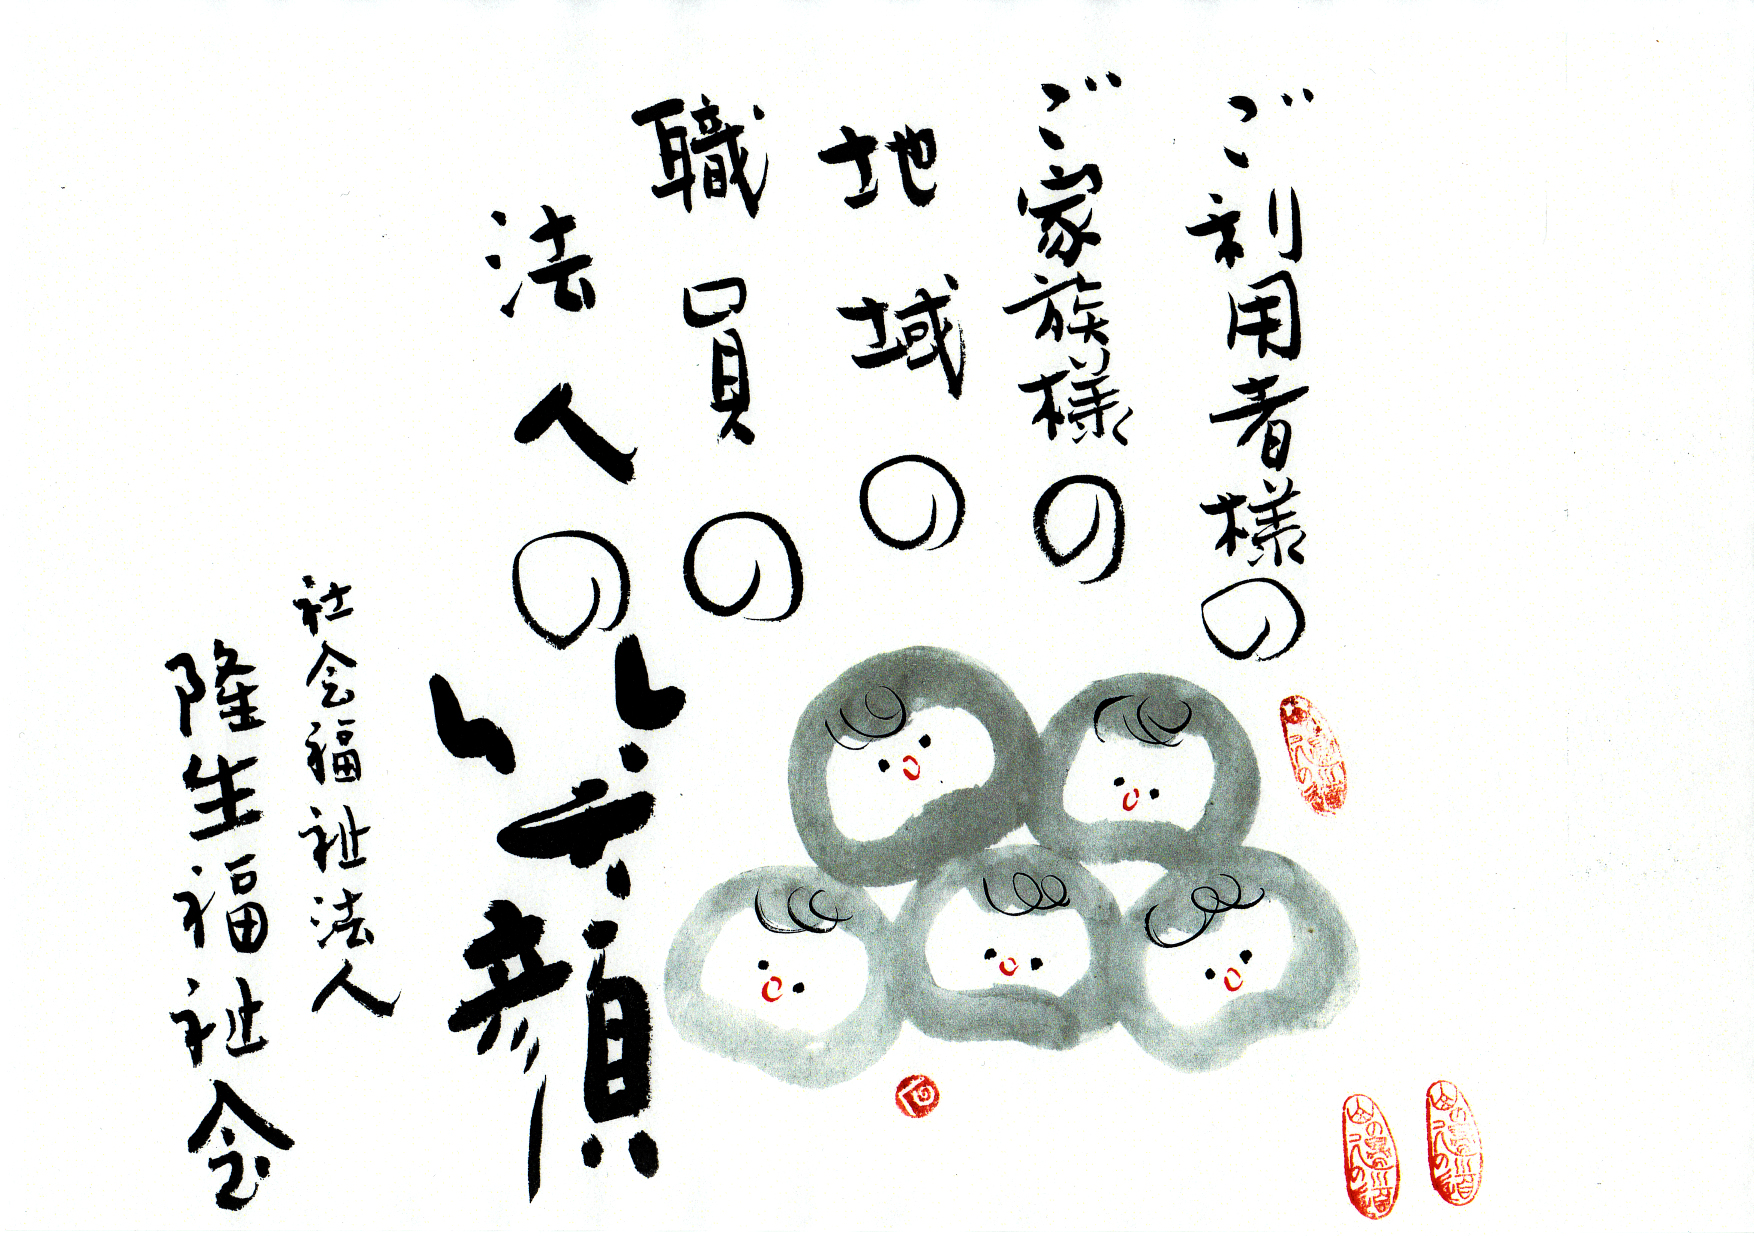 ご利用者様の
ご家族様の
地域の
職員の
法人の
笑顔
社会福祉法人
隆生福祉会